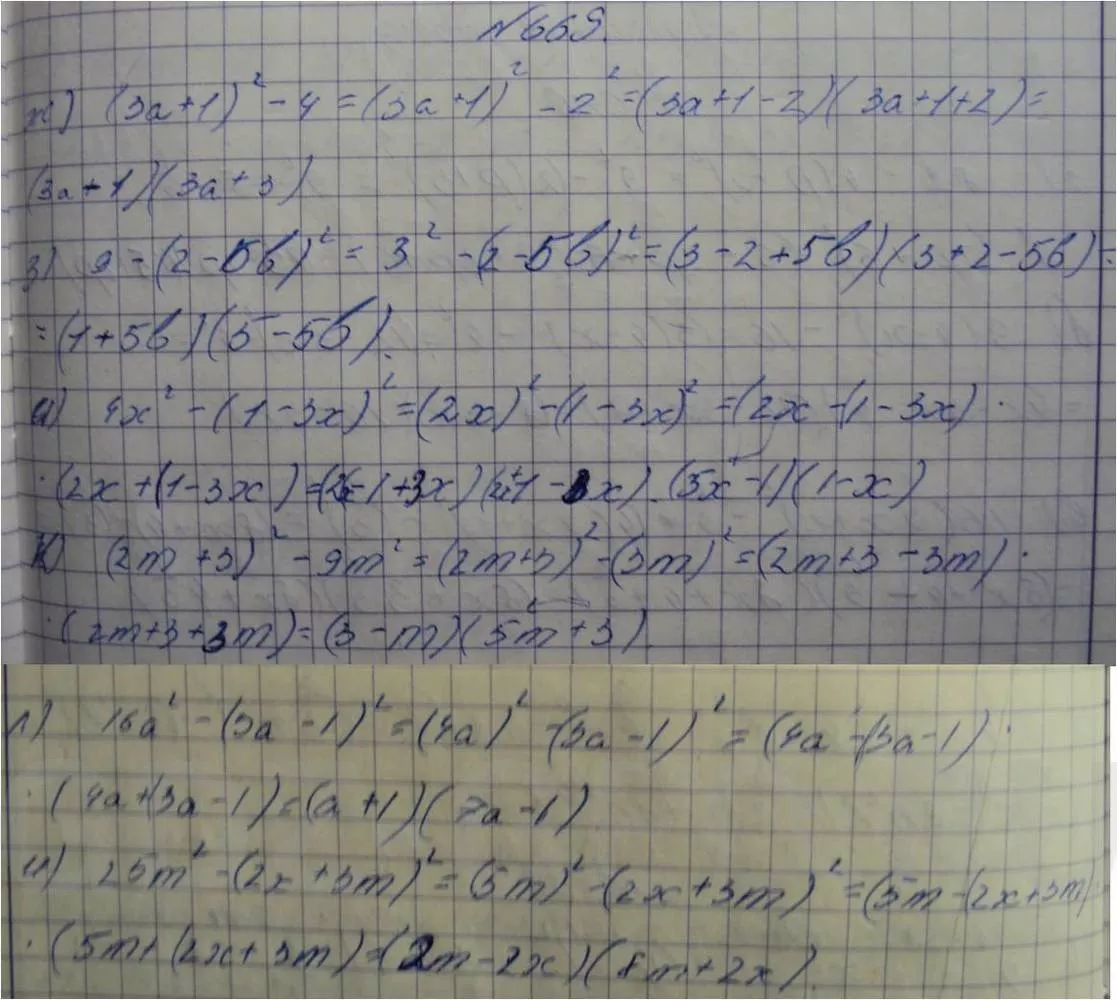 №669.
ж) (3a+1)² - 4 = (3a+1)² - 2² = (3a+1-2)(3a+1+2) =
(3a+1)(3a+3)
з) 9 - (2-5b)² = 3² - (2-5b)² = (3-2+5b)(3+2-5b) =
= (1+5b)(5-5b).
и) 4x² - (1-3x)² = (2x)² - (1-3x)² = (2x-(1-3x) ·
· (2x+(1-3x) = (2x-1+3x)(2x+1-3x). (5x-1)(1-x)
к) (2m+3)² - 9m² = (2m+3)² - (3m)² = (2m+3-3m) ·
· (2m+3+3m) = (3-m)(5m+3).
л) 16a² - (3a-1)² = (4a)² - (3a-1)² = (4a-(3a-1) ·
· (4a+(3a-1) = (a+1)(7a-1)
м) 25m² - (2x+3m)² = (5m)² - (2x+3m)² = (5m-(2x+3m) ·
· (5m+(2x+3m) = (2m-2x)(8m+2x).